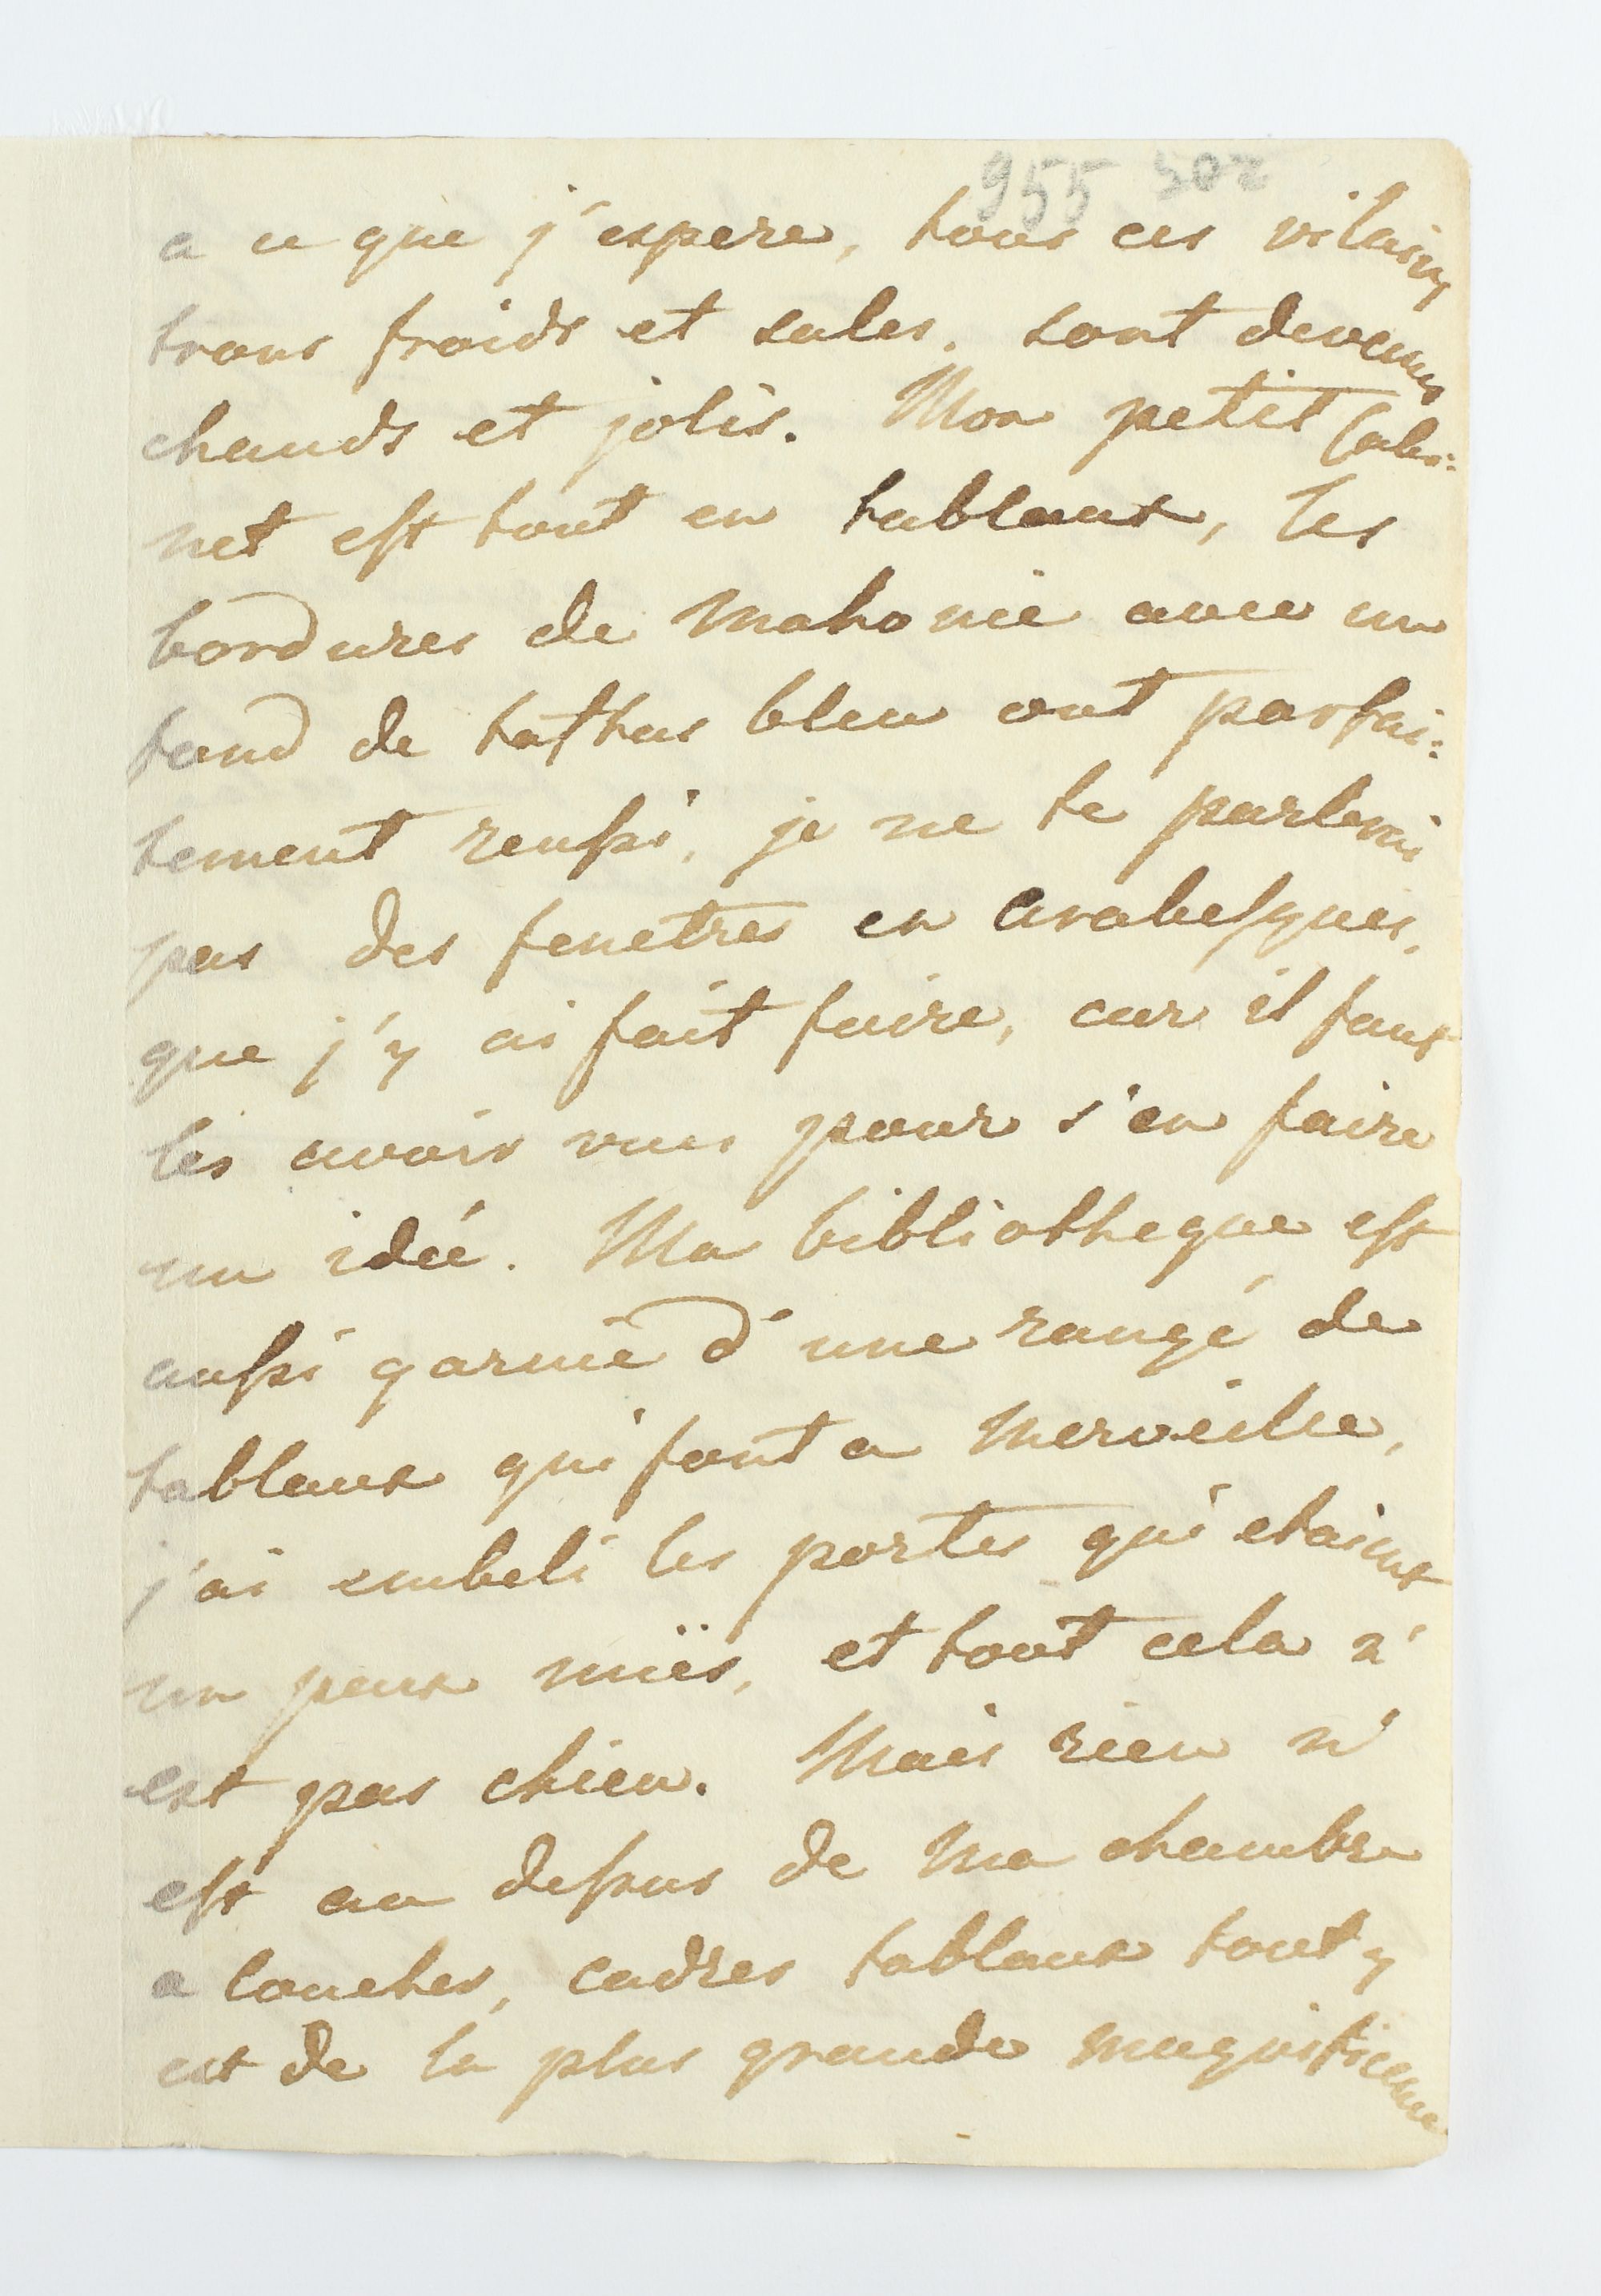 955 502
a ce que j'espere, tous ces vilains
trous froids et sales, sont devenus
chauds et jolis. Mon petit Cabi:
net est tout en tableaux, les
bordures de Mahonie avec un
fond de taftas bleu ont parfai:
tement reussi, je ne te parlerai
pas des fenetres en arabesques,
que j'y ai fait faire, car il faut
les avoir vues pour s'en faire
un idée. Ma bibliotheque est
aussi garnie d'une rangé de
tableaux qui font a merveille,
j'ai embeli les portes qui etaient
un peux nuës, et tout cela n'
est pas chien. Mais rien n'
est au dessus de Ma chambre
a coucher, cadres tableaux tout y
est de la plus grande magnificence